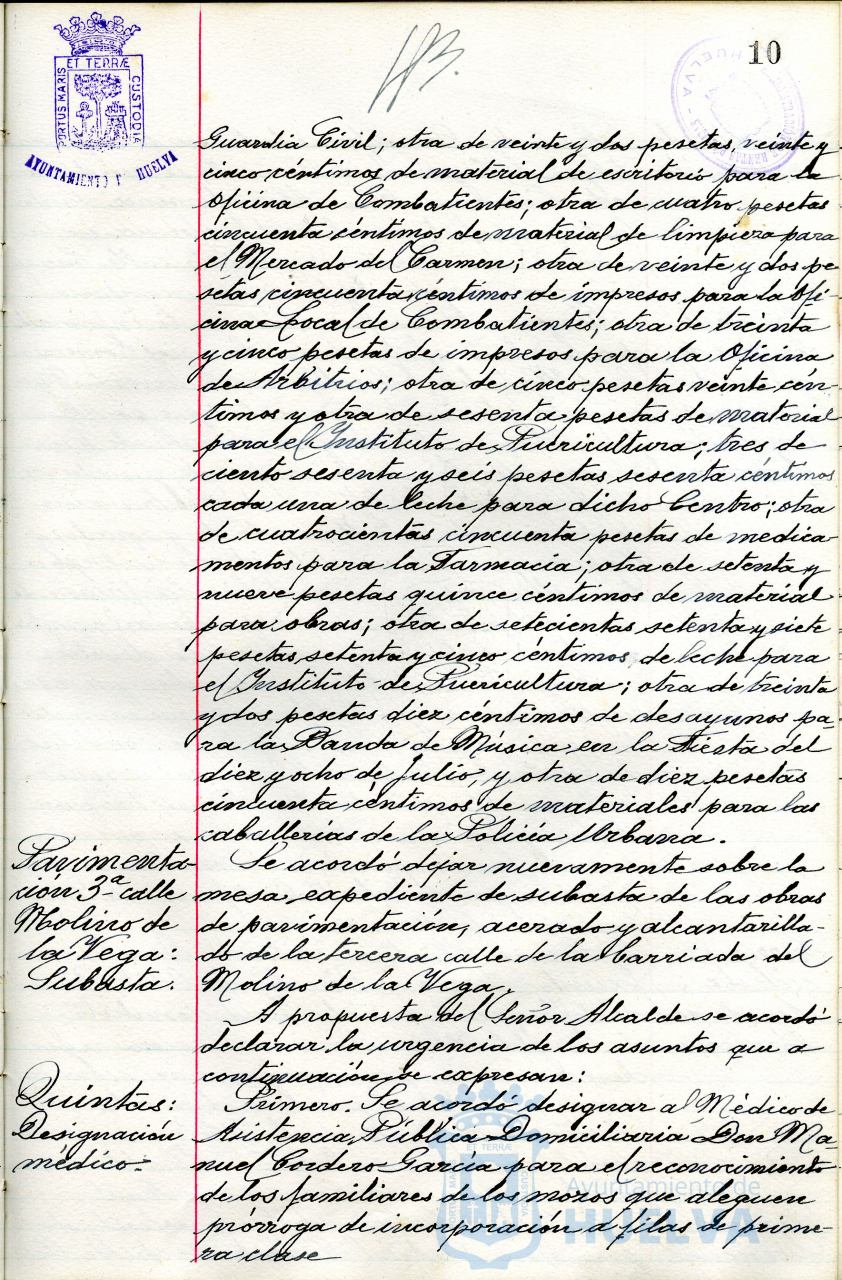 10
PORTUS MARIS ET TERRÆ CUSTODIA
AYUNTAMIENTO DE HUELVA
Guardia Civil; otra de veinte y dos pesetas, veinte y
cinco céntimos de material de escritorio para la
Oficina de Combatientes; otra de cuatro pesetas
cincuenta céntimos de material de limpieza para
el Mercado del Carmen; otra de veinte y dos pe-
setas cincuenta céntimos de impresos para la Ofi-
cina Local de Combatientes; otra de treinta
y cinco pesetas de impresos para la Oficina
de Arbitrios; otra de cinco pesetas veinte cén-
timos y otra de sesenta pesetas de material
para el Instituto de Puericultura; tres de
ciento sesenta y seis pesetas sesenta céntimos
cada una de leche para dicho Centro; otra
de cuatrocientas cincuenta pesetas de medica-
mentos para la Farmacia; otra de setenta y
nueve pesetas quince céntimos de material
para obras; otra de setecientas setenta y siete
pesetas setenta y cinco céntimos de leche para
el Instituto de Puericultura; otra de treinta
y dos pesetas diez céntimos de desayunos pa-
ra la Banda de Música en la Fiesta del
diez y ocho de Julio, y otra de diez pesetas
cincuenta céntimos de materiales para las
caballerías de la Policía Urbana.
Pavimenta-
ción 3ª calle
Molino de
la Vega:
Subasta.
Se acordó dejar nuevamente sobre la
mesa, expediente de subasta de las obras
de pavimentación, acerado y alcantarilla-
do de la tercera calle de la barriada del
Molino de la Vega.
A propuesta del Señor Alcalde se acordó
declarar la urgencia de los asuntos que a
continuación se expresan:
Quintas:
Designación
médico.-
Primero. Se acordó designar al Médico de
Asistencia Pública Domiciliaria Don Ma-
nuel Cordero García para el reconocimiento
de los familiares de los mozos que aleguen
prórroga de incorporación a filas de prime-
ra clase
Ayuntamiento de
HUELVA